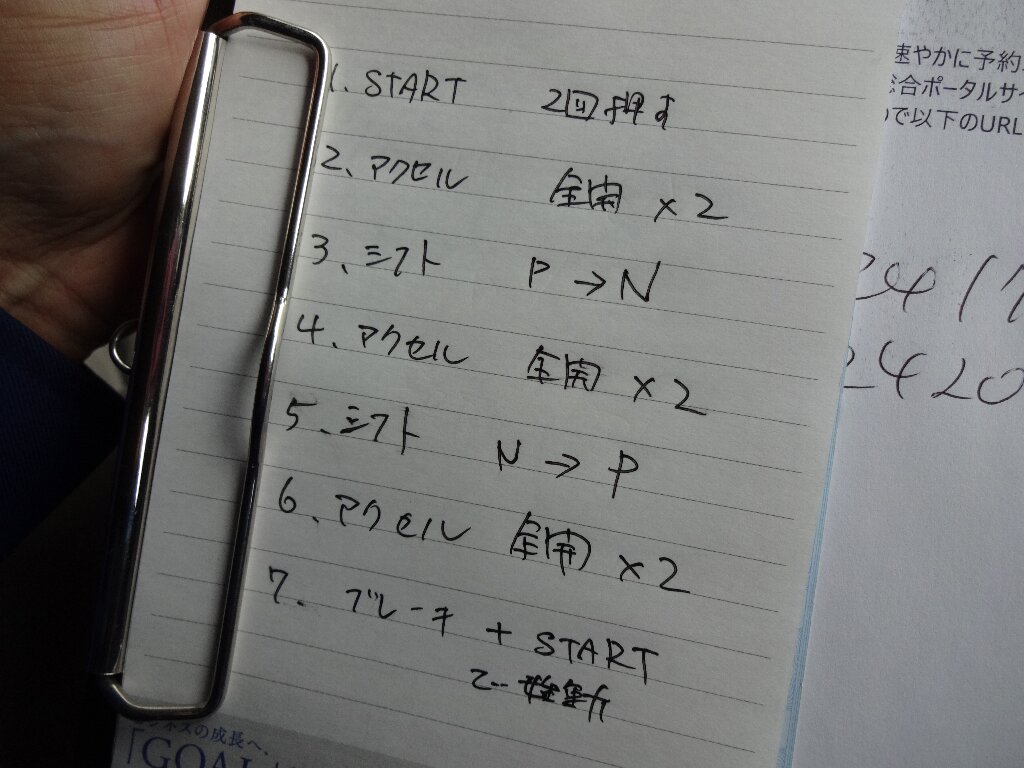 1. START 2回押す
2、アクセル 全開 ×2
3、シフト P→N
4、アクセル 全開 ×2
5、シフト N→P
6、アクセル 全開 ×2
7. ブレーキ + START
で始動
速やかに予約
総合ポータルサイ
で以下のURL
2420
ジネスの成長へ、
「GOAL